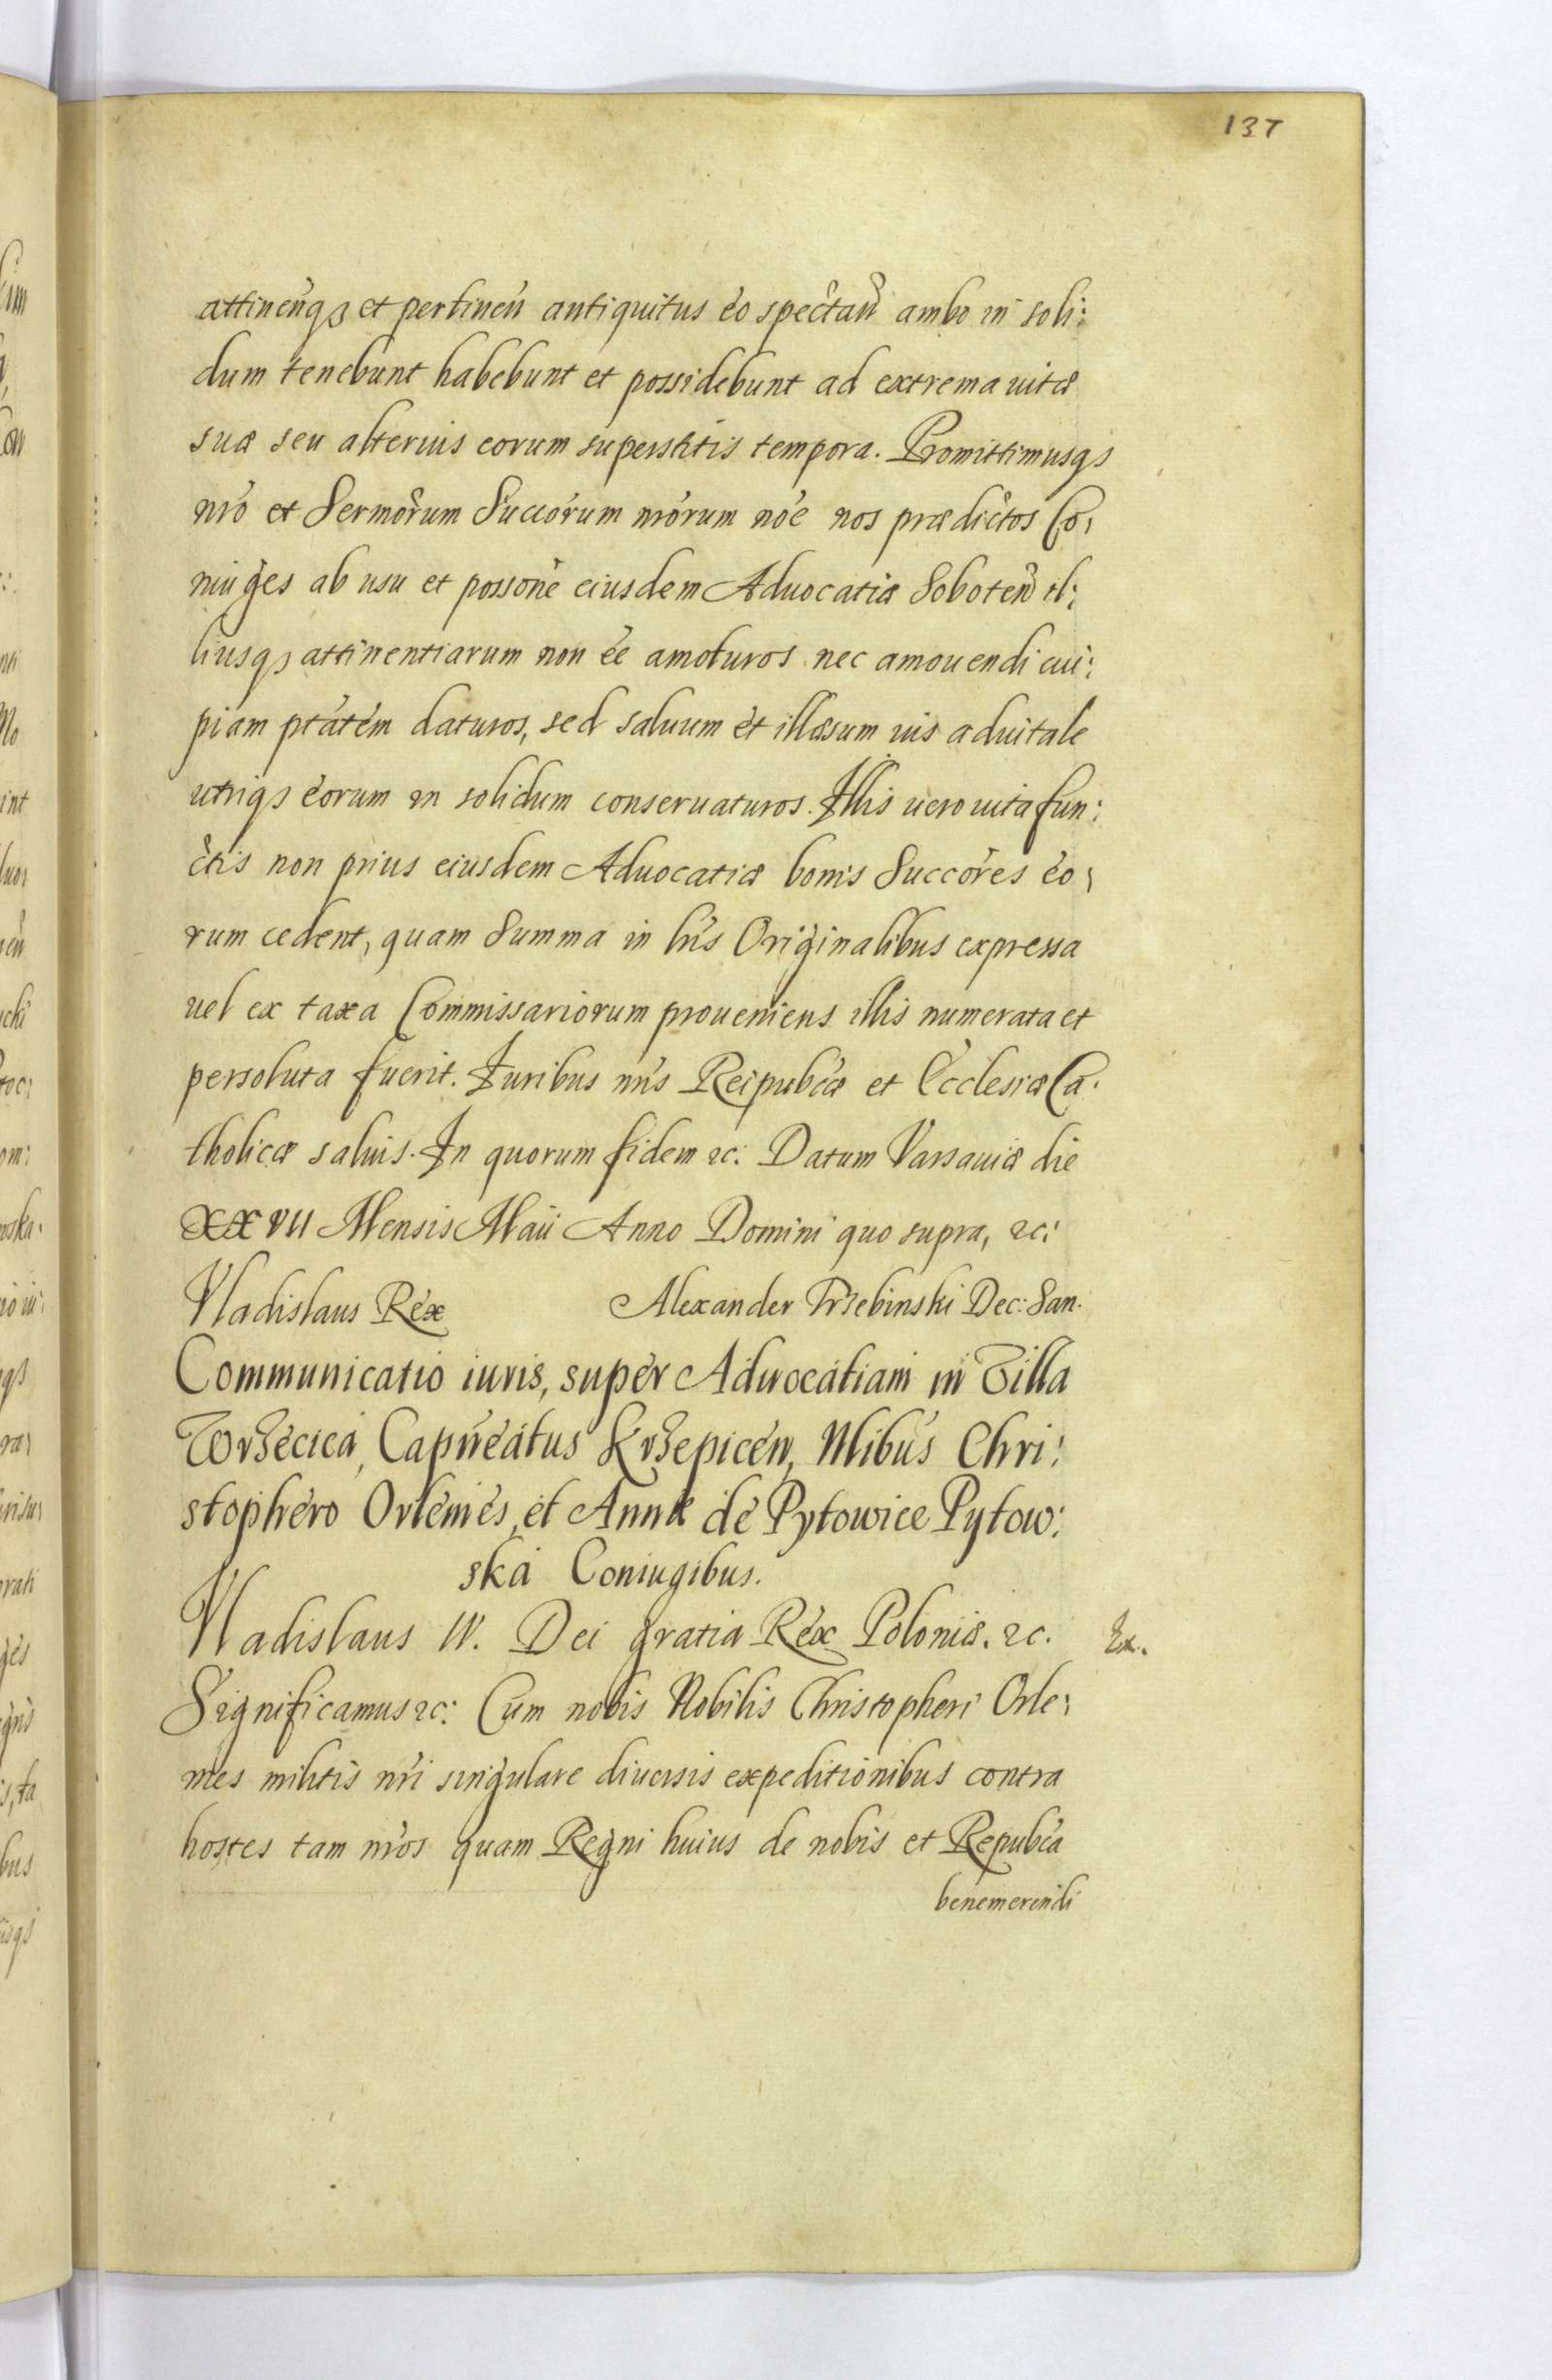 137
attinen̄qȝ et pertinen̄ antiquitus eo spectan̄ ambo in soli:
dum tenebunt habebunt et possidebunt ad extrema uitæ
suæ seu alterius eorum superstitis tempora. Promittimusqȝ
nr̃o et Sermõrum Succõrum nr̃orum nõe nos prædictos Co:
niuges ab usu et possõne eiusdem Aduocatiæ Soboten̄ il:
liusqȝ attinentiarum non ẽe amoturos nec amouendi cui:
piam ptãtem daturos, sed saluum et illæsum ius aduitale
utriqȝ eorum in solidum conseruaturos. Illis uero uita fun:
ctis non prius eiusdem Aduocatiæ bonis Succõres eo:
rum cedent, quam Summa in lr̃is Originalibus expressa
uel ex taxa Commissariorum proueniens illis numerata et
persoluta fuerit. Iuribus nr̃is Reipubcæ et Ecclesiæ Ca:
tholicæ saluis. In quorum fidem &c: Datum Varsauiæ die
XXVII Mensis Maii Anno Domini quo supra, &c:
Vladislaus Rex Alexander Trzebinski Dec: San.
Communicatio iuris, super Aduocatiam in Villa
Torzecica, Capneatus Krzepicen, Nlibus Chri:
stophero Orlemes, et Annæ de Pytowice Pytow:
ska Coniugibus.
Vladislaus IV. Dei gratia Rex Poloniæ. &c. Ex.
Significamus &c: Cum nobis Nobilis Christopheri Orle:
mes militis nr̃i singulare diuersis expeditionibus contra
hostes tam nr̃os quam Regni huius de nobis et Repubca
benemerendi